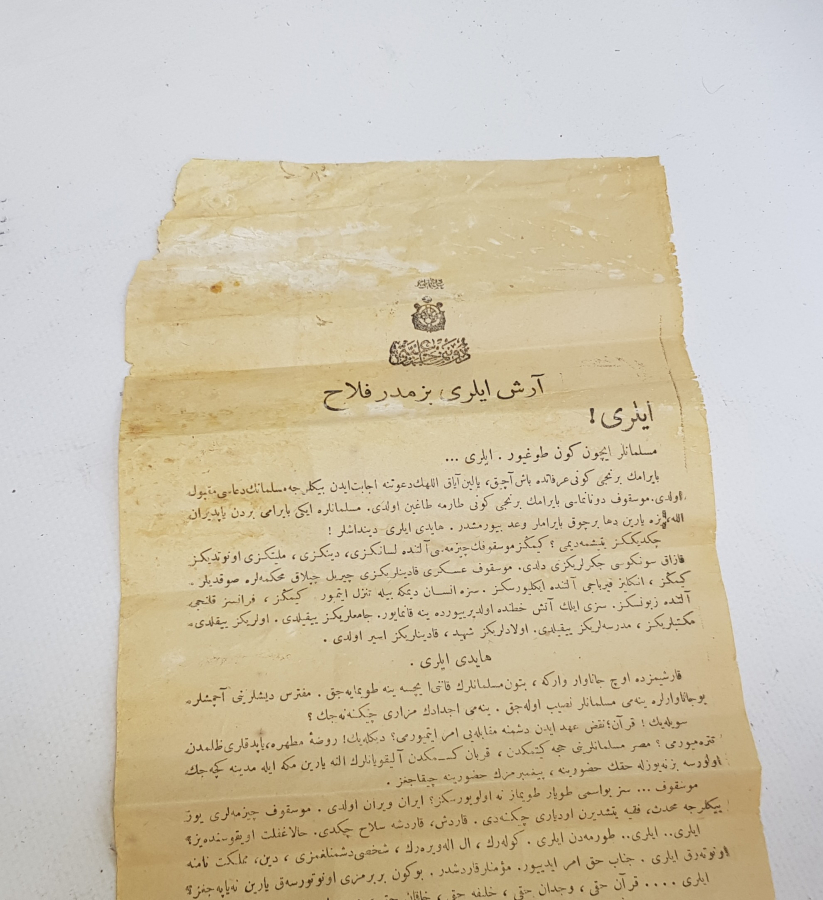 آرش ایلری، بزمدر فلاح
ایلری!
مسلمانلر ایچون كون طوغیور . ایلری ...
بایرامك برنجی كونی عرفاتده باش آچیق، یالین آیاق اللهك دعوتنه اجابت ایدن بیكلرجه مسلمانك دعاسی مقبول
اولدی. موسقوف دونانماسی بایرامك برنجی كونی طارمه طاغین اولدی. مسلمانلره ایكی بایرامی بردن یاپدیران
الله، بزه یارین دها برچوق بایراملر وعد بیورمشدر . هایدی ایلری دینداشلر !
چكدیككز یتیشمه دیمی ؟ كیمكز موسقوفك چیزمه سی آلتنده لسانكزی، دینكزی ، ملیتكزی اونوتدیكز
قازاق سونكوسی جكرلریكزی دلدی. موسقوف عسكری قادینلریكزی چیریل چپلاق محكمه لره صوقدیلر .
كیمكز ، انكلیز قیرباجی آلتنده ایكلیورسكز . سزه انسان دیمكه بیله تنزل ایتمیور كیمكز ، فرانسز قلنجی
آلتنده زبونسكز. سزی ایلك آتش خطنده اولدیرییورده ینه قانمایور. جامعلریكز ییقیلدی . اولریكز ییقلدی.
مكتبلریكز ، مدرسه لریكز ییقیلدی. اولادلریكز شهید ، قادینلریكز اسیر اولدی .
هایدی ایلری .
قارشیمزده اوچ جاناوار واركه ، بتون مسلمانلرك قاننی ایچسه ینه طویمایه جق . مفترس دیشلرینی آچمشلر.
بو جاناوارلره ینه می مسلمانلر نصیب اوله جق . ینه می اجدادك مزاری چیكنه نه جك ؟
سویله یك ! قرآن؛ نقض عهد ایدن دشمنه مقابله یی امر ایتمیورمی؟ دیكله یك! روضۀ مطهره، یاپدقلری ظلمدن
تتره میورمی ؟ مصر مسلمانلرینی حجه كیتمكدن ، قربان كسمكدن آلیقویانلرك الله یارین مكه ایله مدینه كچه جك
اولورسه بز نه یوزله حقك حضورینه ، پیغمبرمزك حضورینه چیقاجغز .
موسقوف ... سز بو اسمی طویار طویماز نه اولویورسكز؟ ایران ویران اولدی . موسقوف چیزمه لری یوز
بیكلرجه محدث، فقیه یتشدیرن اودیاری چیكنه دی . قارداش، قارداشه سلاح چكدی. حالا غفلت اویقوسنده یز؟
ایلری.. ایلری.. طورمه دن ایلری . كوله رك ، ال اله ویره رك ، شخصی دشمنلغمزی ، دین، مملكت نامنه
اونوته رق ایلری . جناب حق امر ایدیور. مؤمنلر قارداشدر . بوكون بربرمزی اونوتورسه ق یارین نه یاپه جغز؟
ایلری .... قرآن حقی ، وجدان حقی ، خلیفه حقی ، خاقان حقی